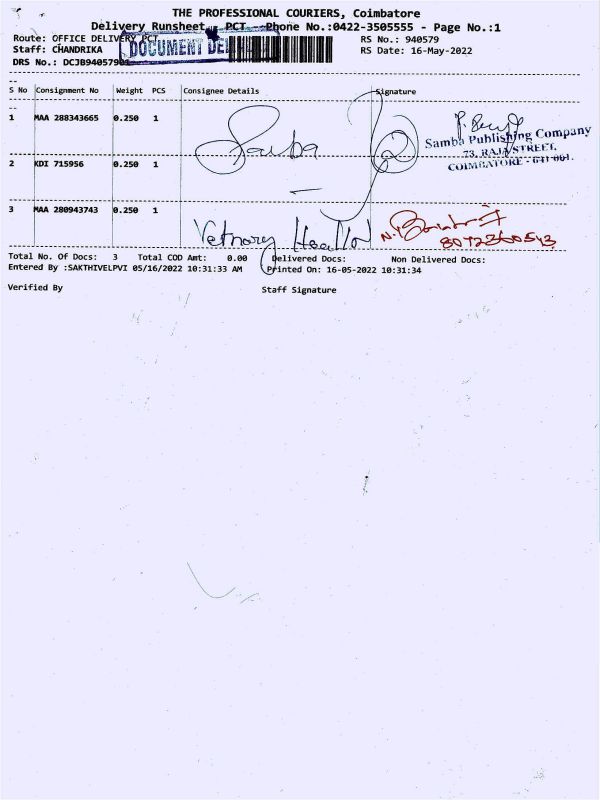 THE PROFESSIONAL COURIERS, Coimbatore
Delivery Runsheet PCT Phone No.:0422-3505555 - Page No.:1
Route: OFFICE DELIVERY PCT
RS No.: 940579
Staff: CHANDRIKA
DOCUMENT
RS Date: 16-May-2022
DRS No.:
S No Consignment No Weight PCS Consignee Details Signature
1 MAA 288343665 0.250 1
Samba
Samba Publishing Company
73, RAJA STREET,
COIMBATORE - 641 001.
2 KDI 715956 0.250 1
3 MAA 280943743 0.250 1
8072360513
Total No. Of Docs: 3 Total COD Amt: 0.00 Delivered Docs: Non Delivered Docs:
Entered By :SAKTHIVELPVI 05/16/2022 10:31:33 AM Printed On: 16-05-2022 10:31:34
Verified By Staff Signature